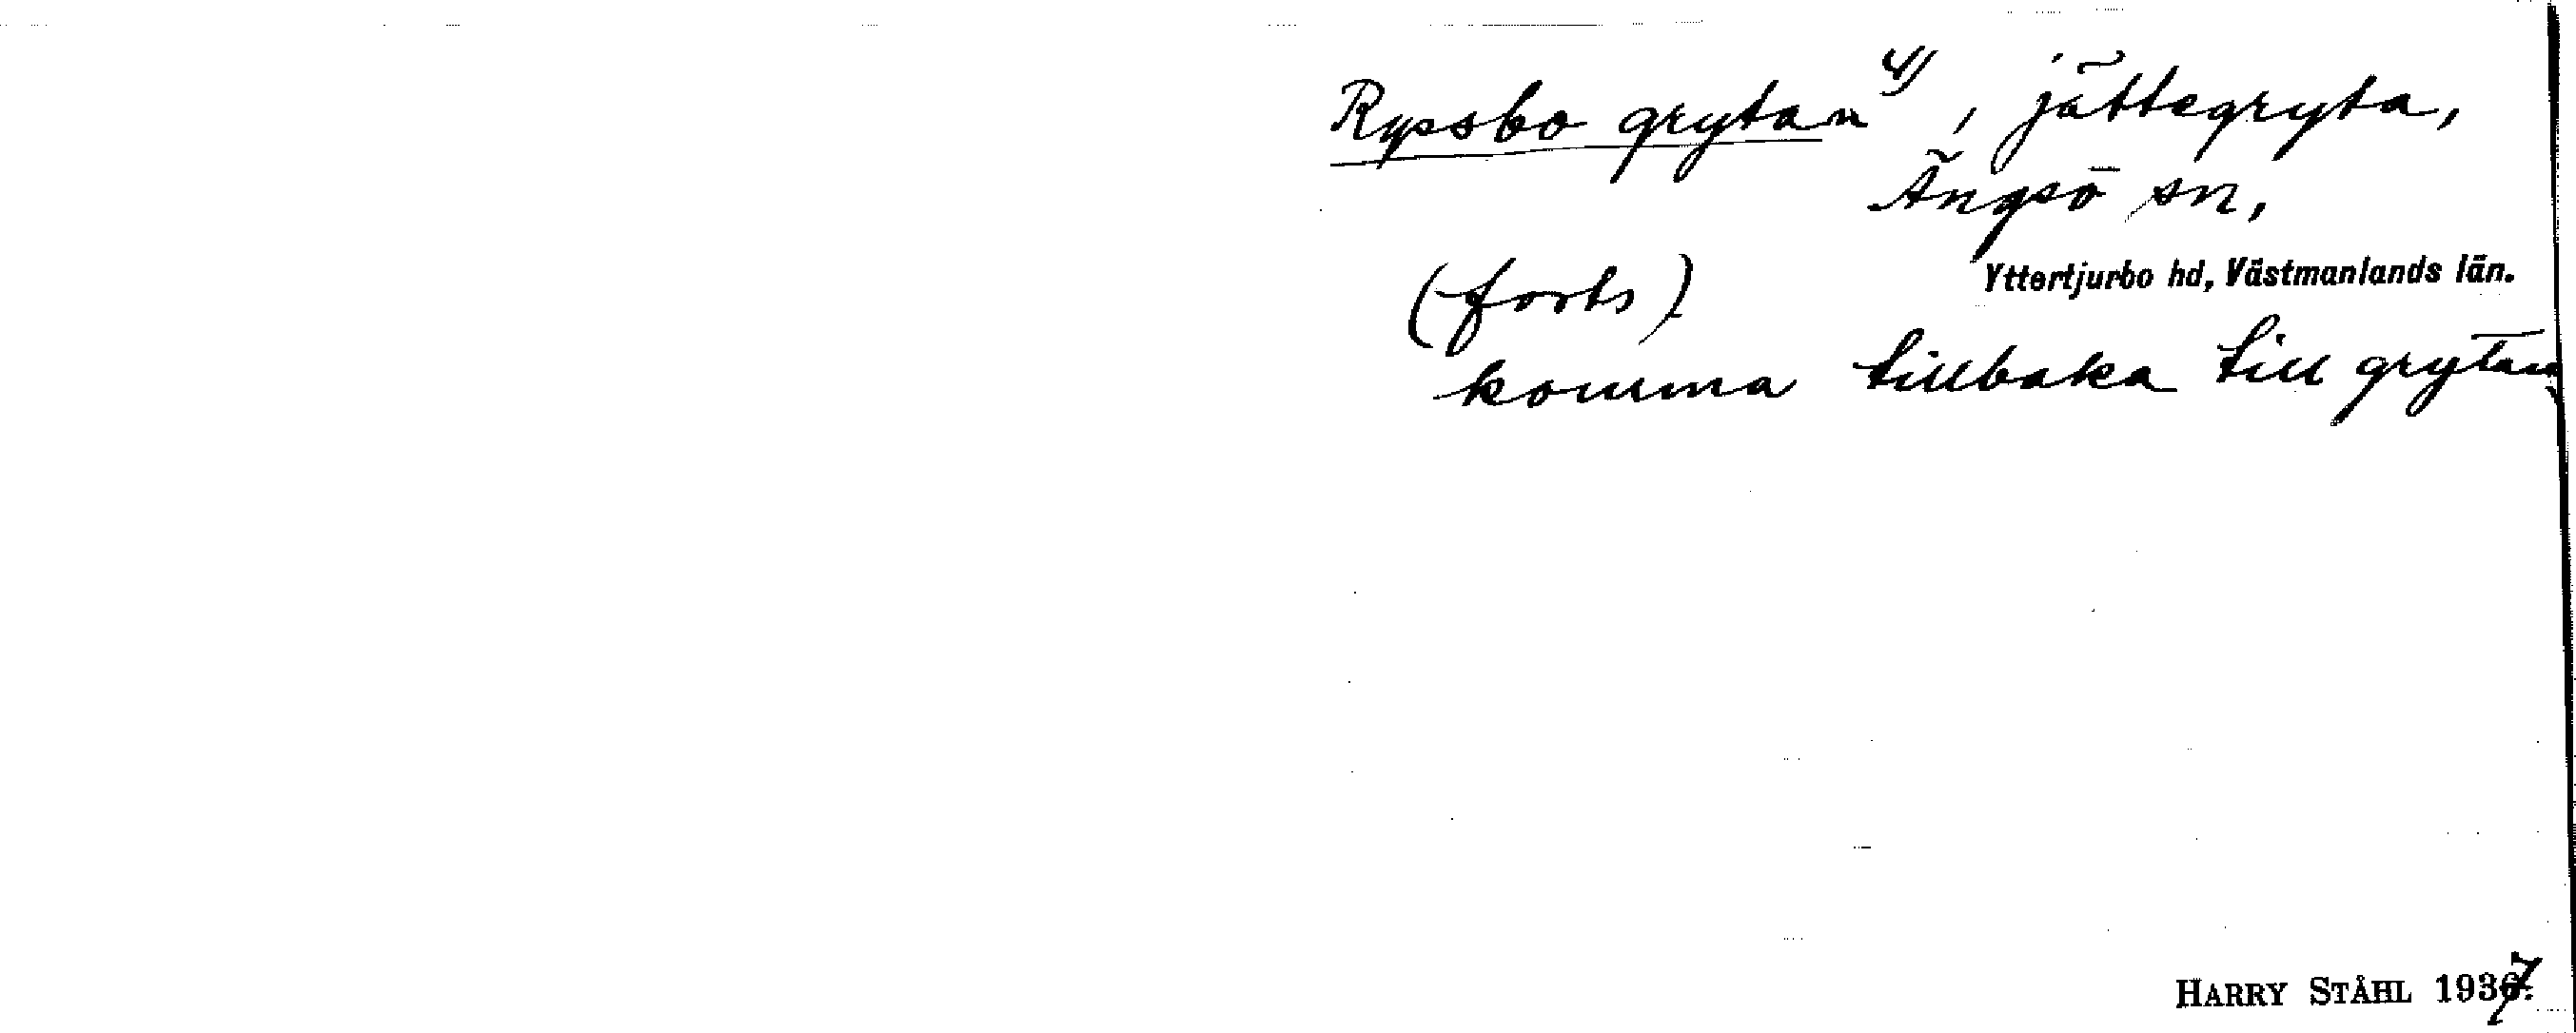 Ryssbo grytan 4), jättegryta,
Ängsö sn,
Yttertjurbo hd, Västmanlands län.
(forts)
komma tillbaka till grytan
HARRY STÅHL 1937.